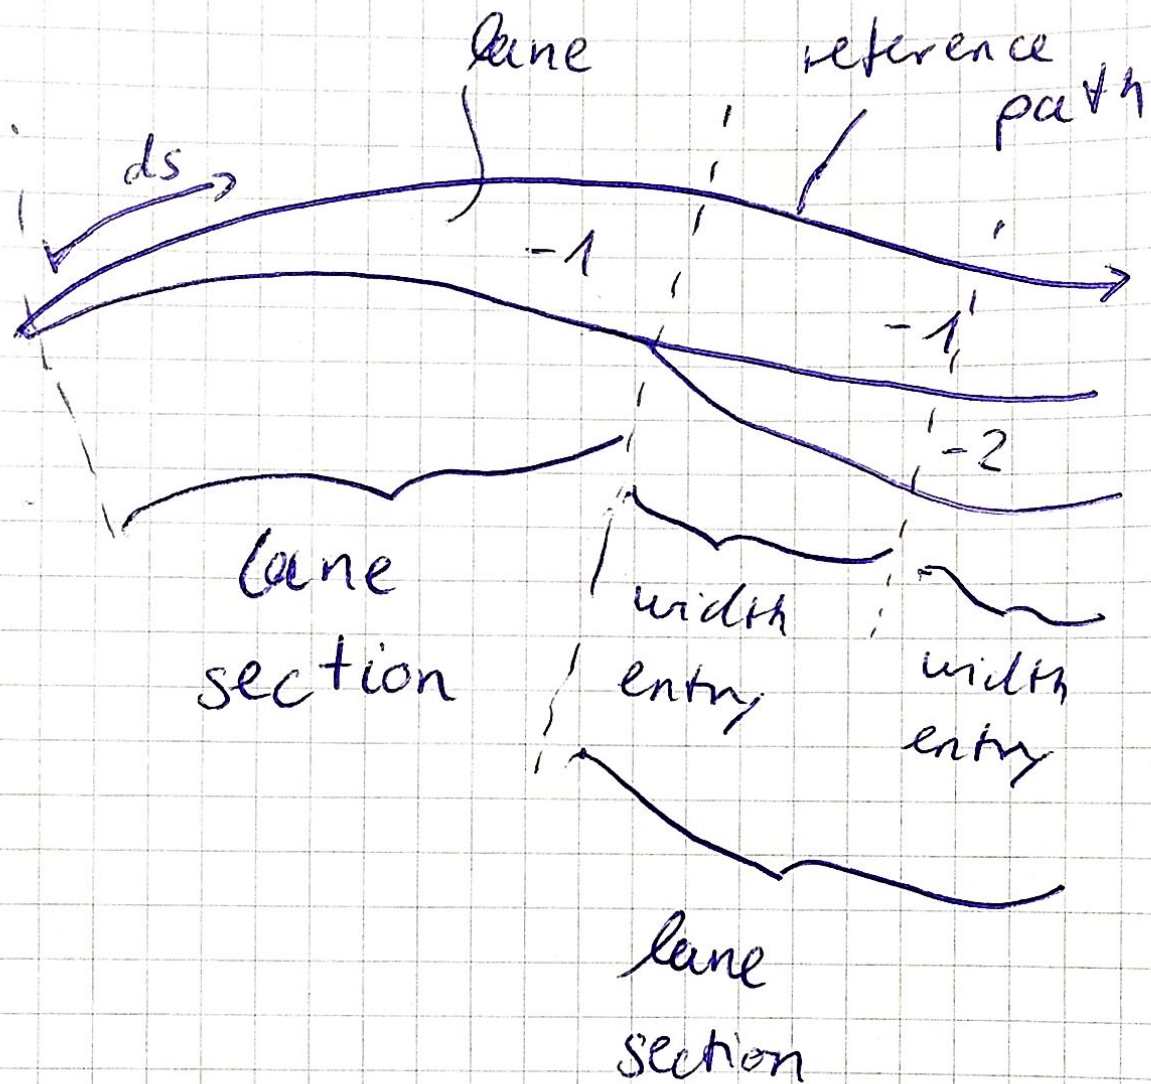 lane
reference
path
ds
-1
-1
-2
lane
section
width
entry
width
entry
lane
section